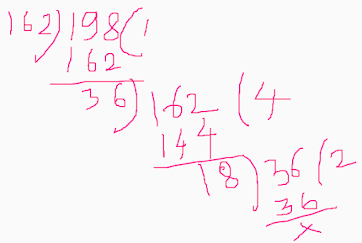 162)198(1
162
36)162(4
144
18)36(2
36
x